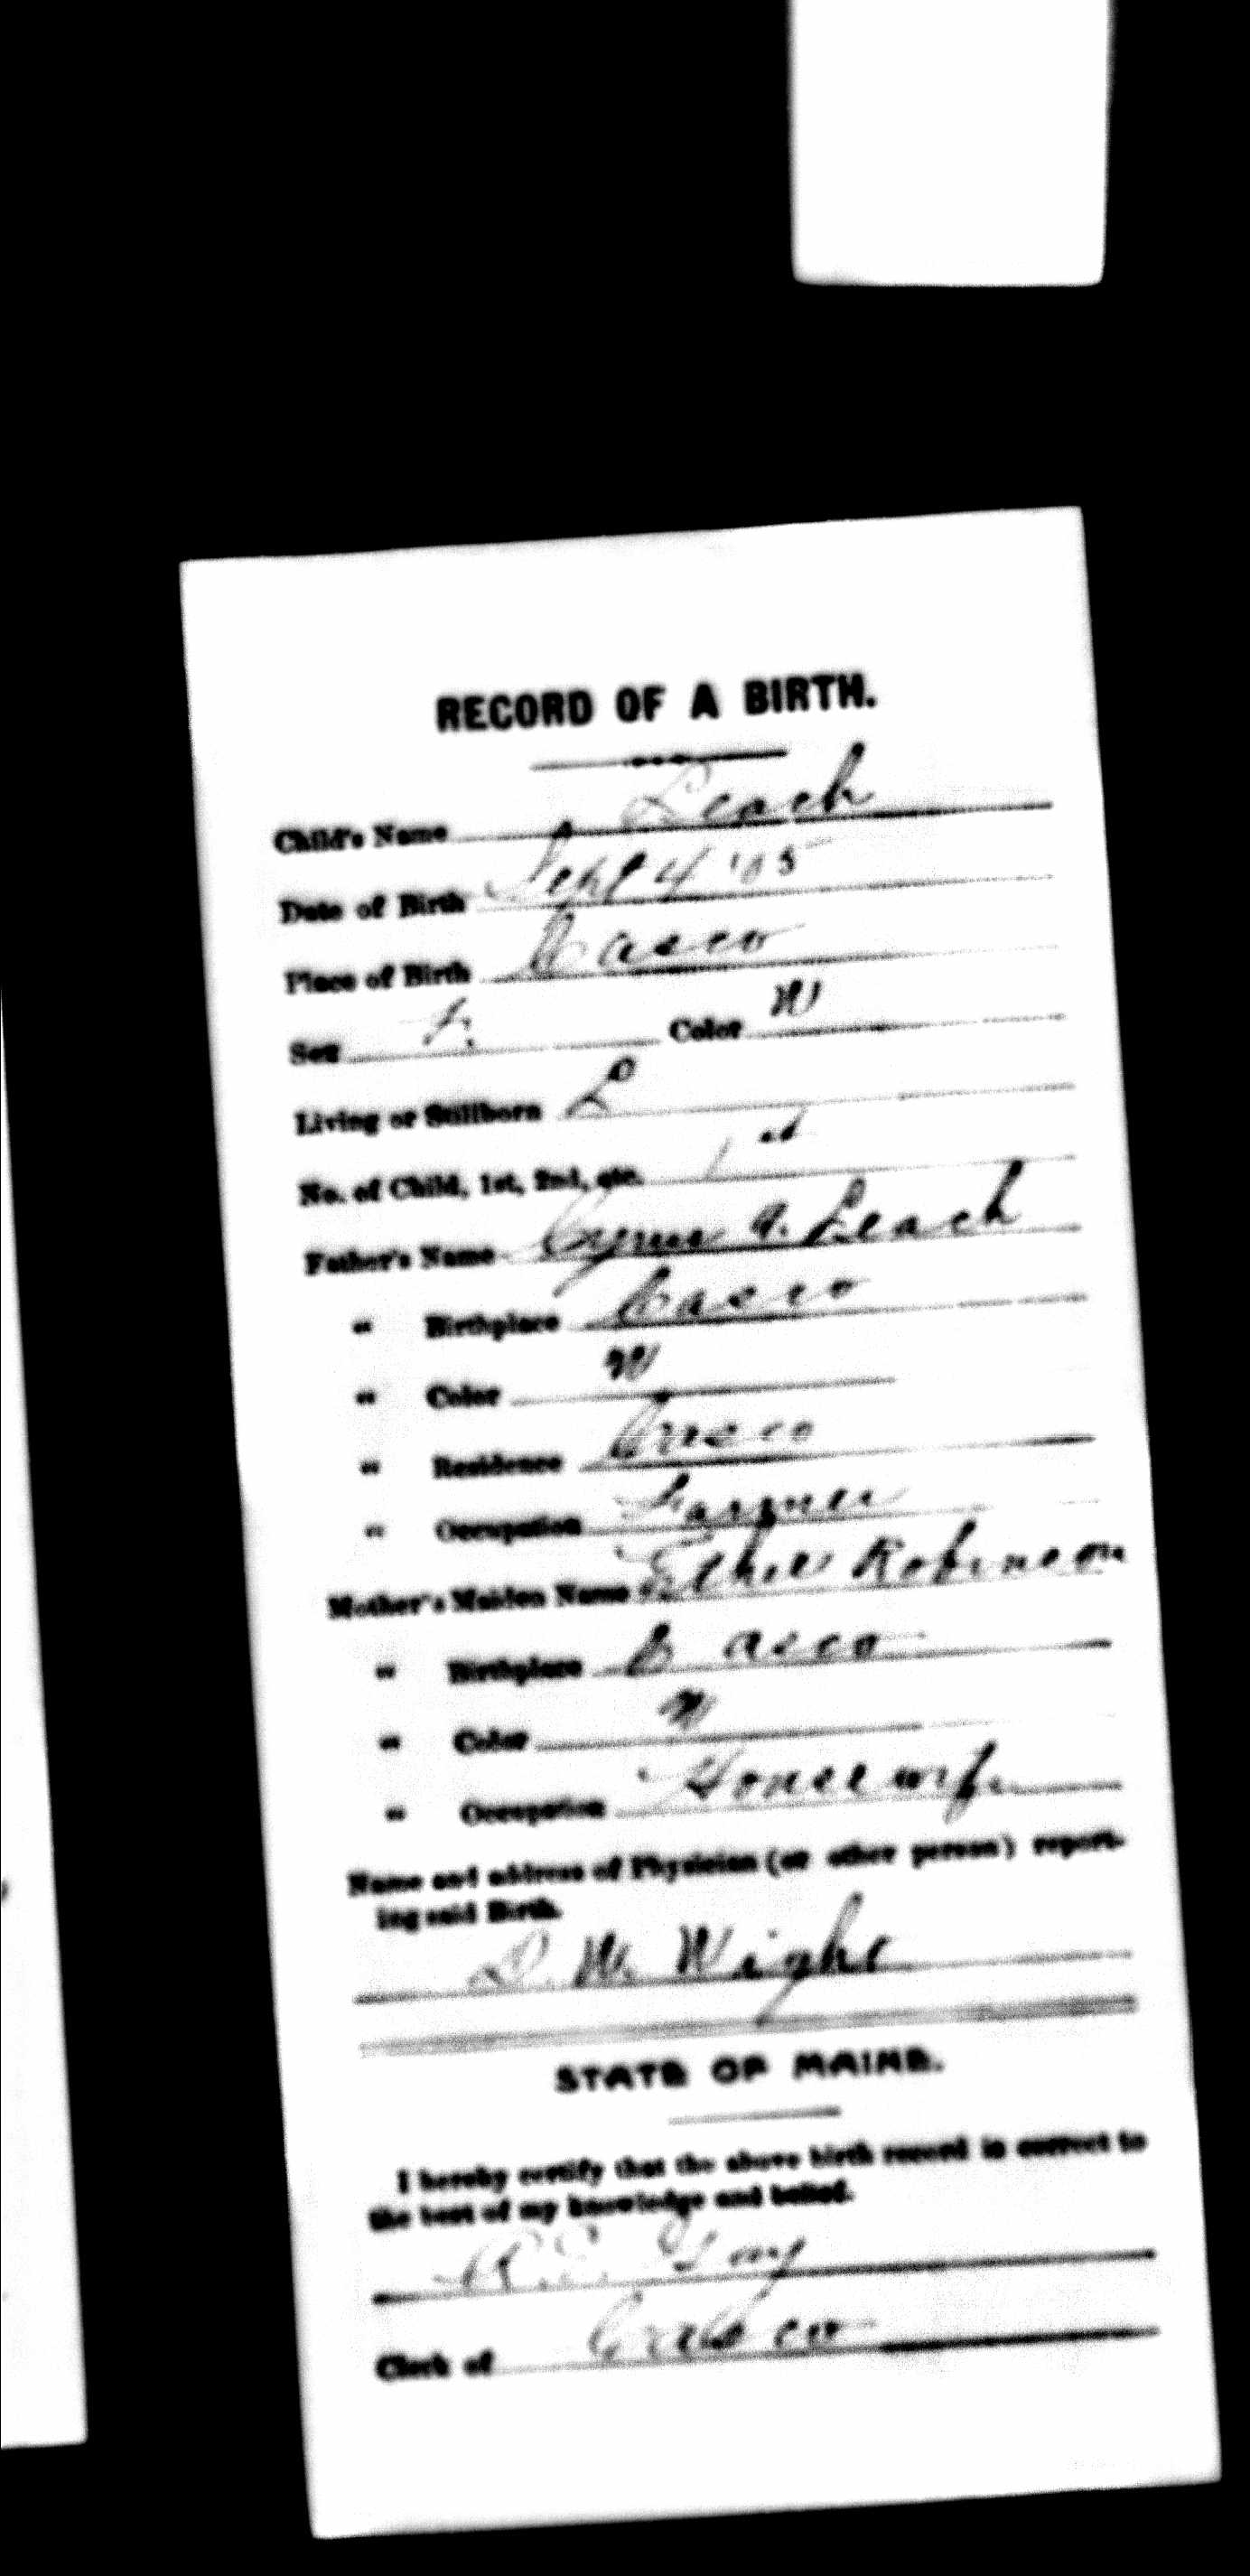 RECORD OF A BIRTH.
Child's Name Leach
Date of Birth Sept 4 '05
Place of Birth Casco
Sex F. Color W
Living or Stillborn L
No. of Child, 1st, 2nd, etc. 1st
Father's Name Cyrus A. Leach
" Birthplace Casco
" Color W
" Residence Casco
" Occupation Farmer
Mother's Maiden Name Ethel Robinson
" Birthplace Casco
" Color W
" Occupation Housewife
Name and address of Physician (or other person) report-
ing said Birth.
L. W. Wight
STATE OF MAINE.
I hereby certify that the above birth record is correct to
the best of my knowledge and belief.
Gay
Clerk of Casco